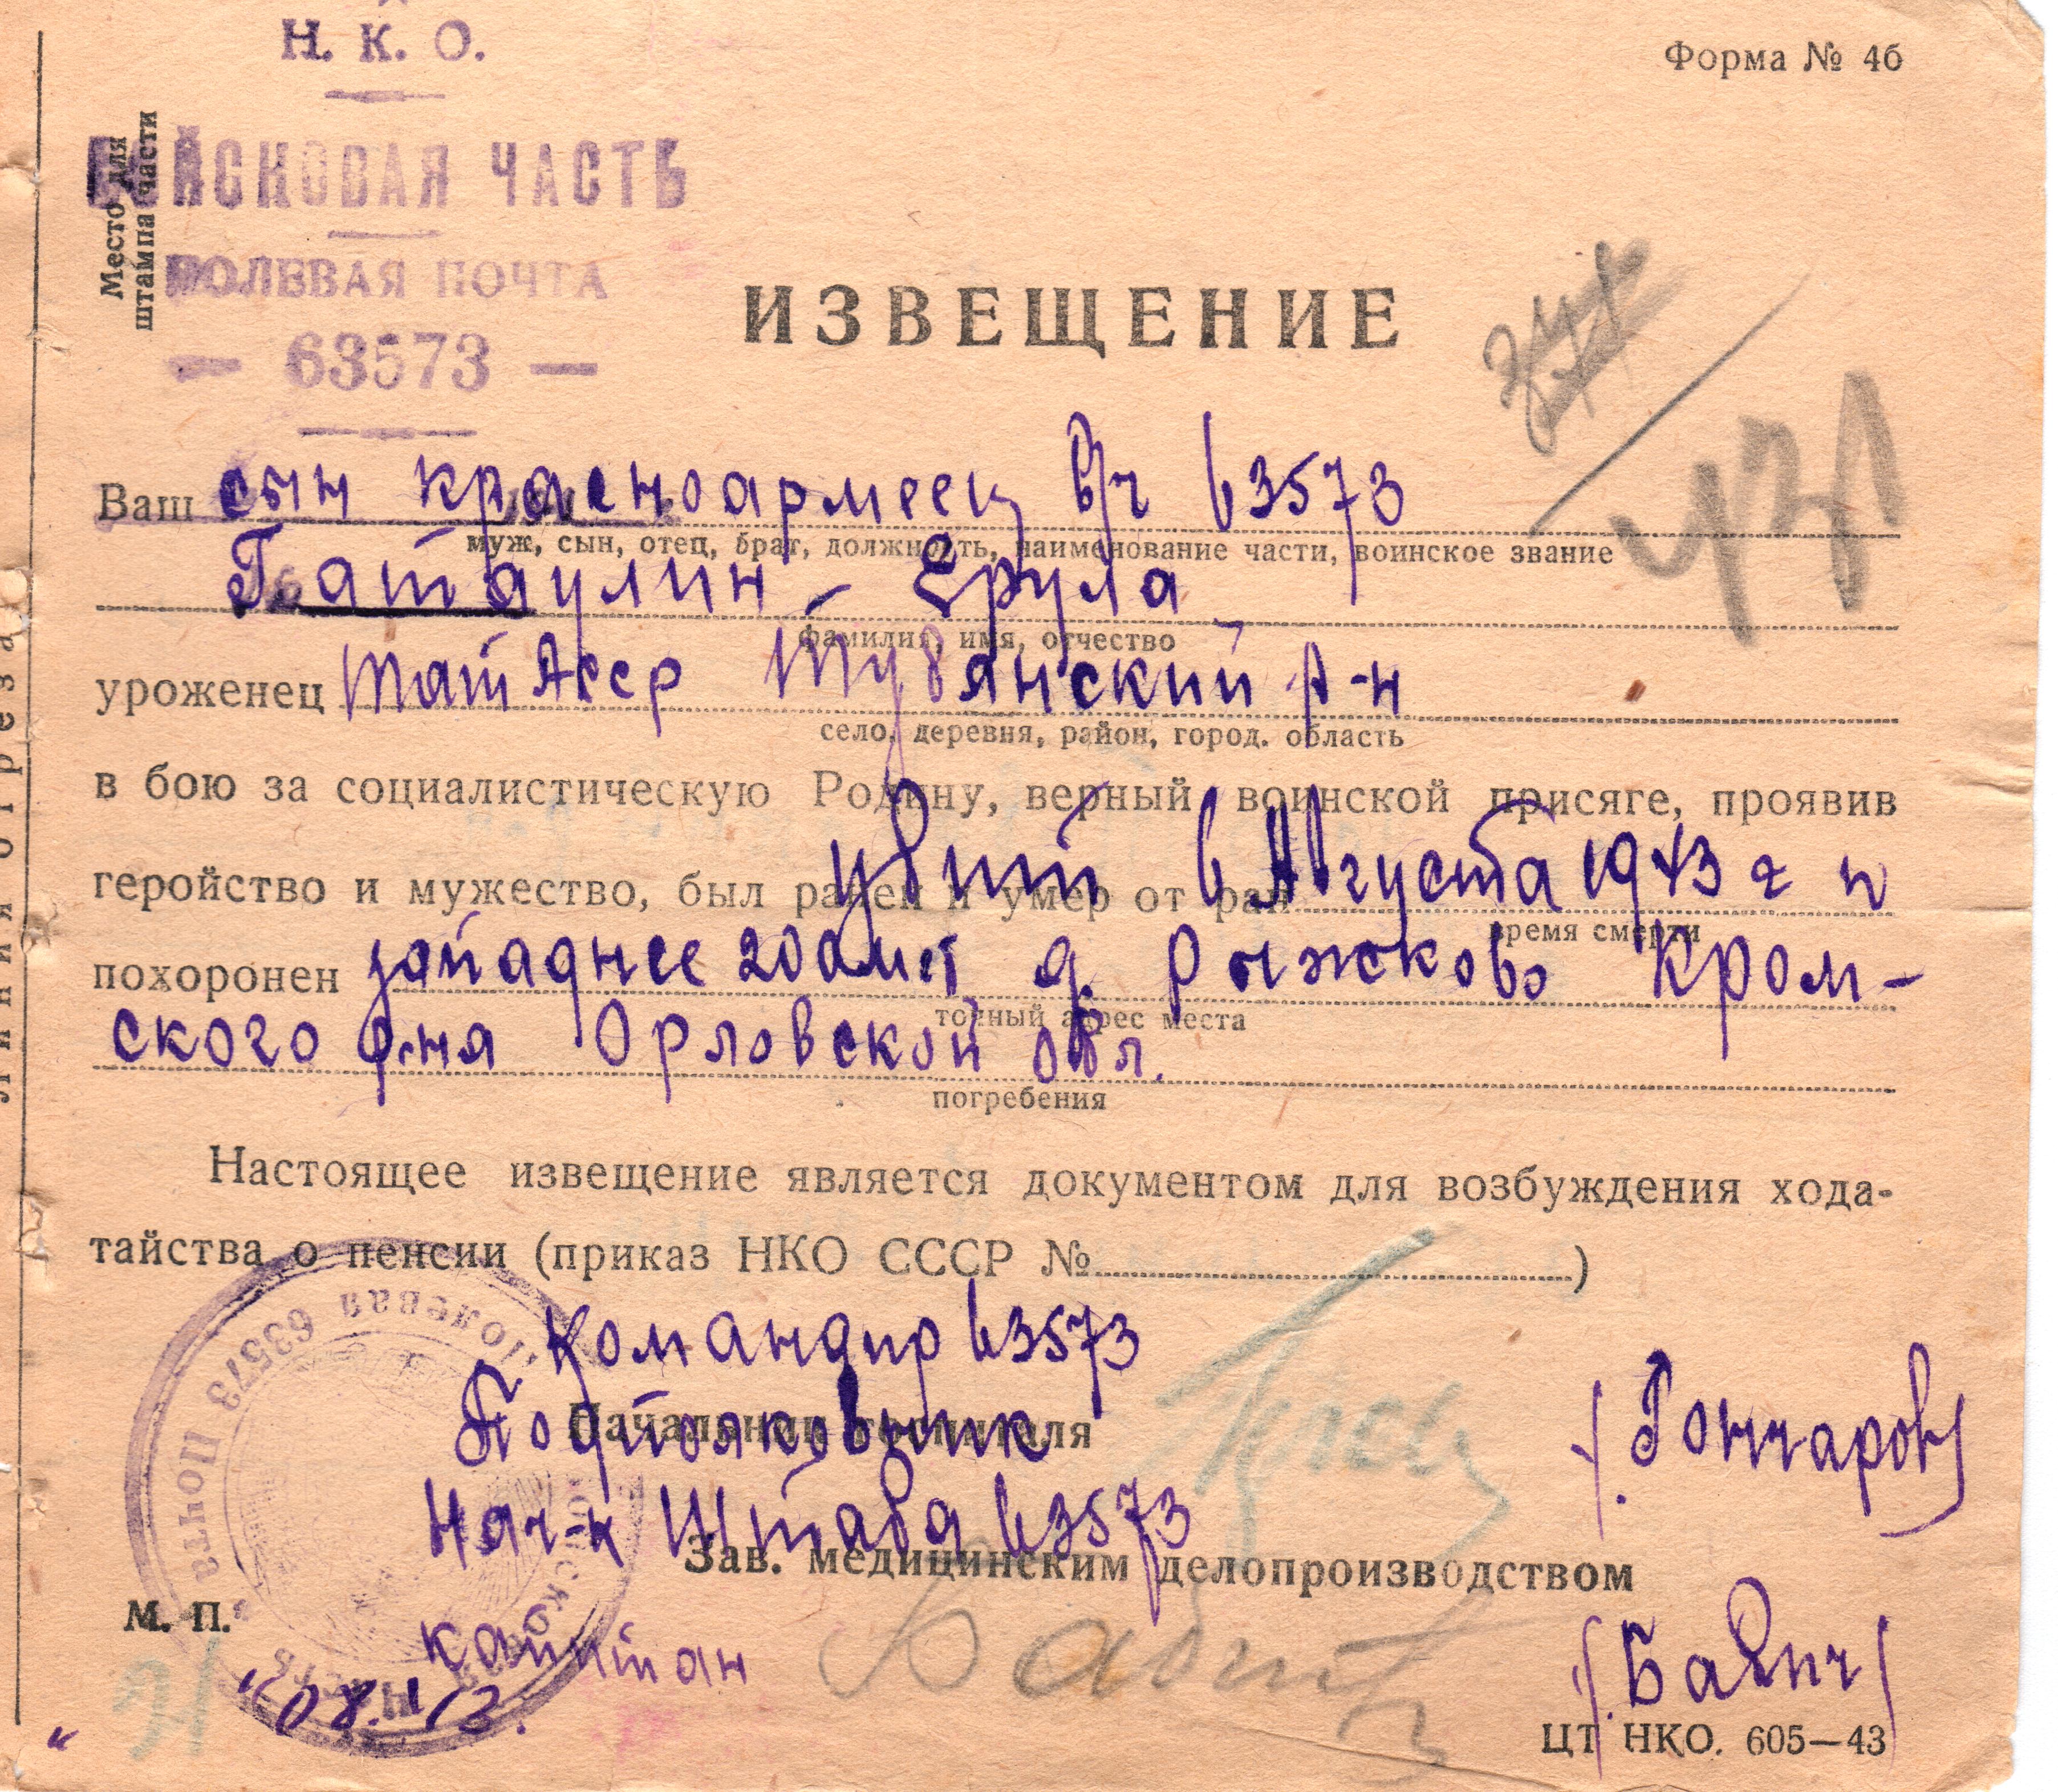 Н. К. О.
Форма № 4б
Место для
штампа части
ВОЙСКОВАЯ ЧАСТЬ
ПОЛЕВАЯ ПОЧТА
— 63573 —
ИЗВЕЩЕНИЕ
Ваш сын красноармеец в/ч 63573
муж, сын, отец, брат, должность, наименование части, воинское звание
Гатаулин - Ерула
фамилия, имя, отчество
уроженец ТатАсср Тубянский р-н
село, деревня, район, город. область
в бою за социалистическую Родину, верный воинской присяге, проявив
геройство и мужество, был ранен и умер от ран убит 6 Августа 1943 г и
время смерти
похоронен западнее 200 мет д. Рыжково Кром-
точный адрес места
ского р-на Орловской обл.
погребения
Настоящее извещение является документом для возбуждения хода-
тайства о пенсии (приказ НКО СССР № )
Командир 63573
Начальник госпиталя
Подполковник
/Гончаров/
Нач-к Штаба 63573
Зав. медицинским делопроизводством
М. П.
капитан
/Бабич/
ЦТ НКО. 605—43
Линия отреза
Полевая Почта 63573